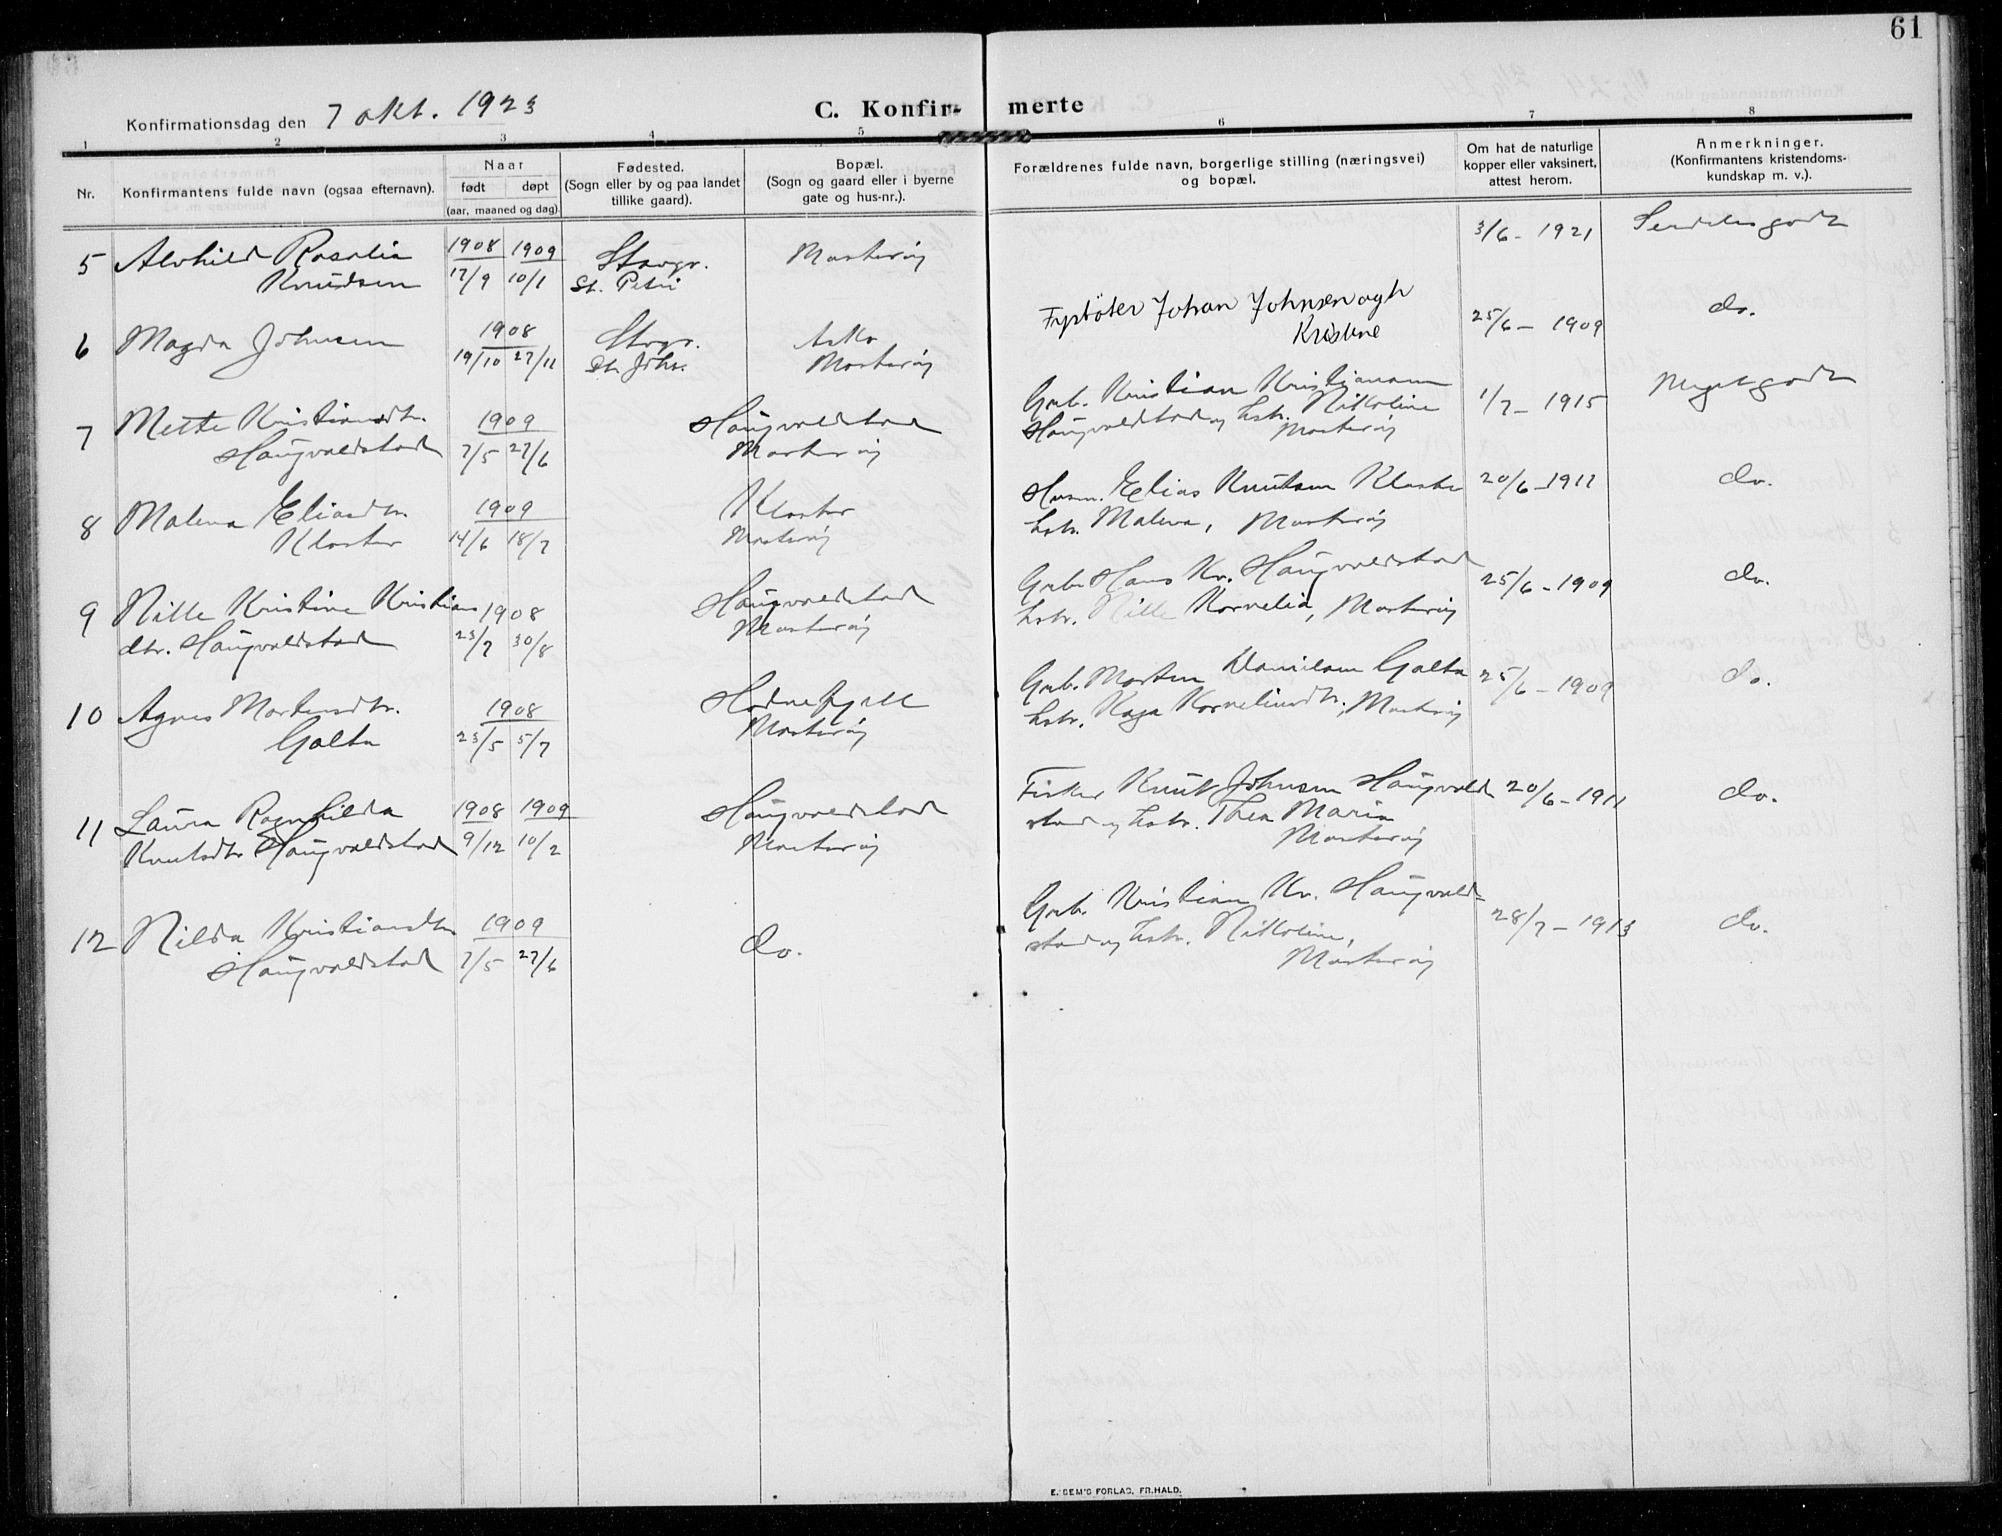 61
Konfirmationsdag den 7 okt. 1923
C. Konfir- merte
1 2 3 4 5 6 7 8
Nr.
Konfirmantens fulde navn (ogsaa efternavn).
Naar
født døpt
(aar, maaned og dag)
Fødested.
(Sogn eller by og paa landet
tillike gaard).
Bopæl.
(Sogn og gaard eller i byerne
gate og hus-nr.).
Forældrenes fulde navn, borgerlige stilling (næringsvei)
og bopæl.
Om hat de naturlige
kopper eller vaksinert,
attest herom.
Anmerkninger.
(Konfirmantens kristendoms-
kundskap m. v.).
5 Alvhild Rosalie 1908 1909 Stavgr. Mosterøy 3/6 - 1921 Serdelesgodt
Knudsen 17/9 10/1 St. Petri
6 Magda Johnsen 1908 Stvgr. Askø Fyrbøter Johan Johnsen og h 25/6 - 1909 do.
19/10 27/11 St. Johs. Mosterøy Kristine
7 Mette Kristiandtr. 1909 Haugvaldstad Grb. Kristian Kristiansen 1/7 - 1915 Megetgodt
Haugvaldstad 7/5 27/6 Mosterøy Haugvaldstad og hstr. Nikoline
Mosterøy
8 Malena Eliasdtr. 1909 Kloster Husm. Elias Knutsen Kloster 20/6 - 1911 do.
Kloster 14/6 18/7 Mosterøy hstr. Malena, Mosterøy
9 Nille Kristine Kristians 1908 Haugvaldstad Grb. Hans Kr. Haugvaldstad 25/6 - 1909 do.
dtr. Haugvaldstad 23/7 30/8 Mosterøy hstr. Nille Kornelia, Mosterøy
10 Agnes Mortensdtr. 1908 Hodnefjell Grb. Morten Danielsen Galta 25/6 - 1909 do.
Galta 23/5 5/7 Mosterøy hstr. Kaja Korneliusdtr., Mosterøy
11 Laura Ragnhilda 1908 1909 Haugvaldstad Fisker Knut Johnsen Haugvald 20/6 - 1911 do.
Knutsdtr Haugvaldstad 9/12 10/2 Mosterøy stad og hstr. Thea Maria
Mosterøy
12 Nilda Kristiandtr 1909 do. Grb. Kristian Kr. Haugvald- 28/7 - 1913 do.
Haugvaldstad 7/5 27/6 stad og hstr. Nikoline,
Mosterøy
E. SEM'S FORLAG, FR.HALD.